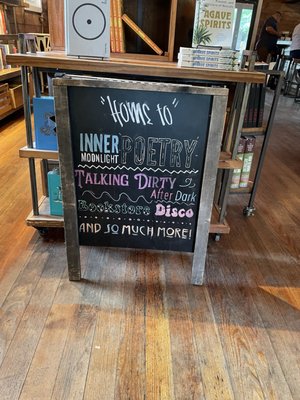 AGAVE
SPIRITS
"Home to"
INNER
MOONLIGHT
POETRY
TALKING DIRTY
After Dark
Bookstore Disco
AND SO MUCH MORE!